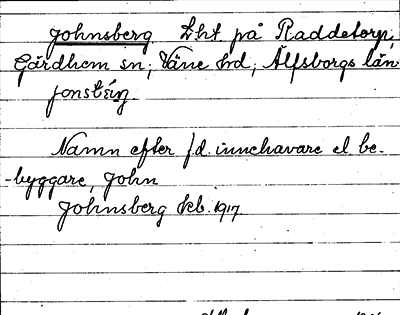 Johnsberg. Lht på Raddetorp,
Gärdhem sn; Väne hd; Älfsborgs län
Namn efter f.d. innehavare el. be-
-byggare, John
Johnsberg kb. 1917.